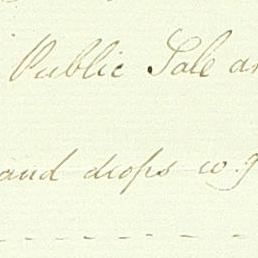 Public Sale an
and drops w. g